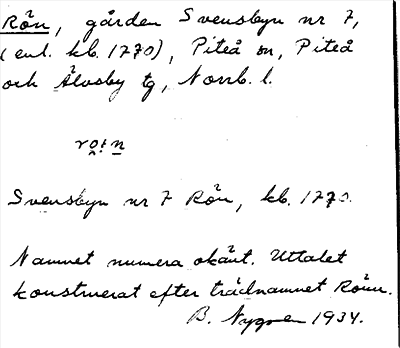 Rön, gården Svensbyn nr 7,
(enl. kb. 1770), Piteå sn, Piteå
och Älvsby tg, Norrb. l.
ro:n
Svensbyn nr 7 Rön, kb. 1770.
Namnet numera okänt. Uttalet
konstruerat efter trädnamnet Rönn.
B. Nygren 1934.